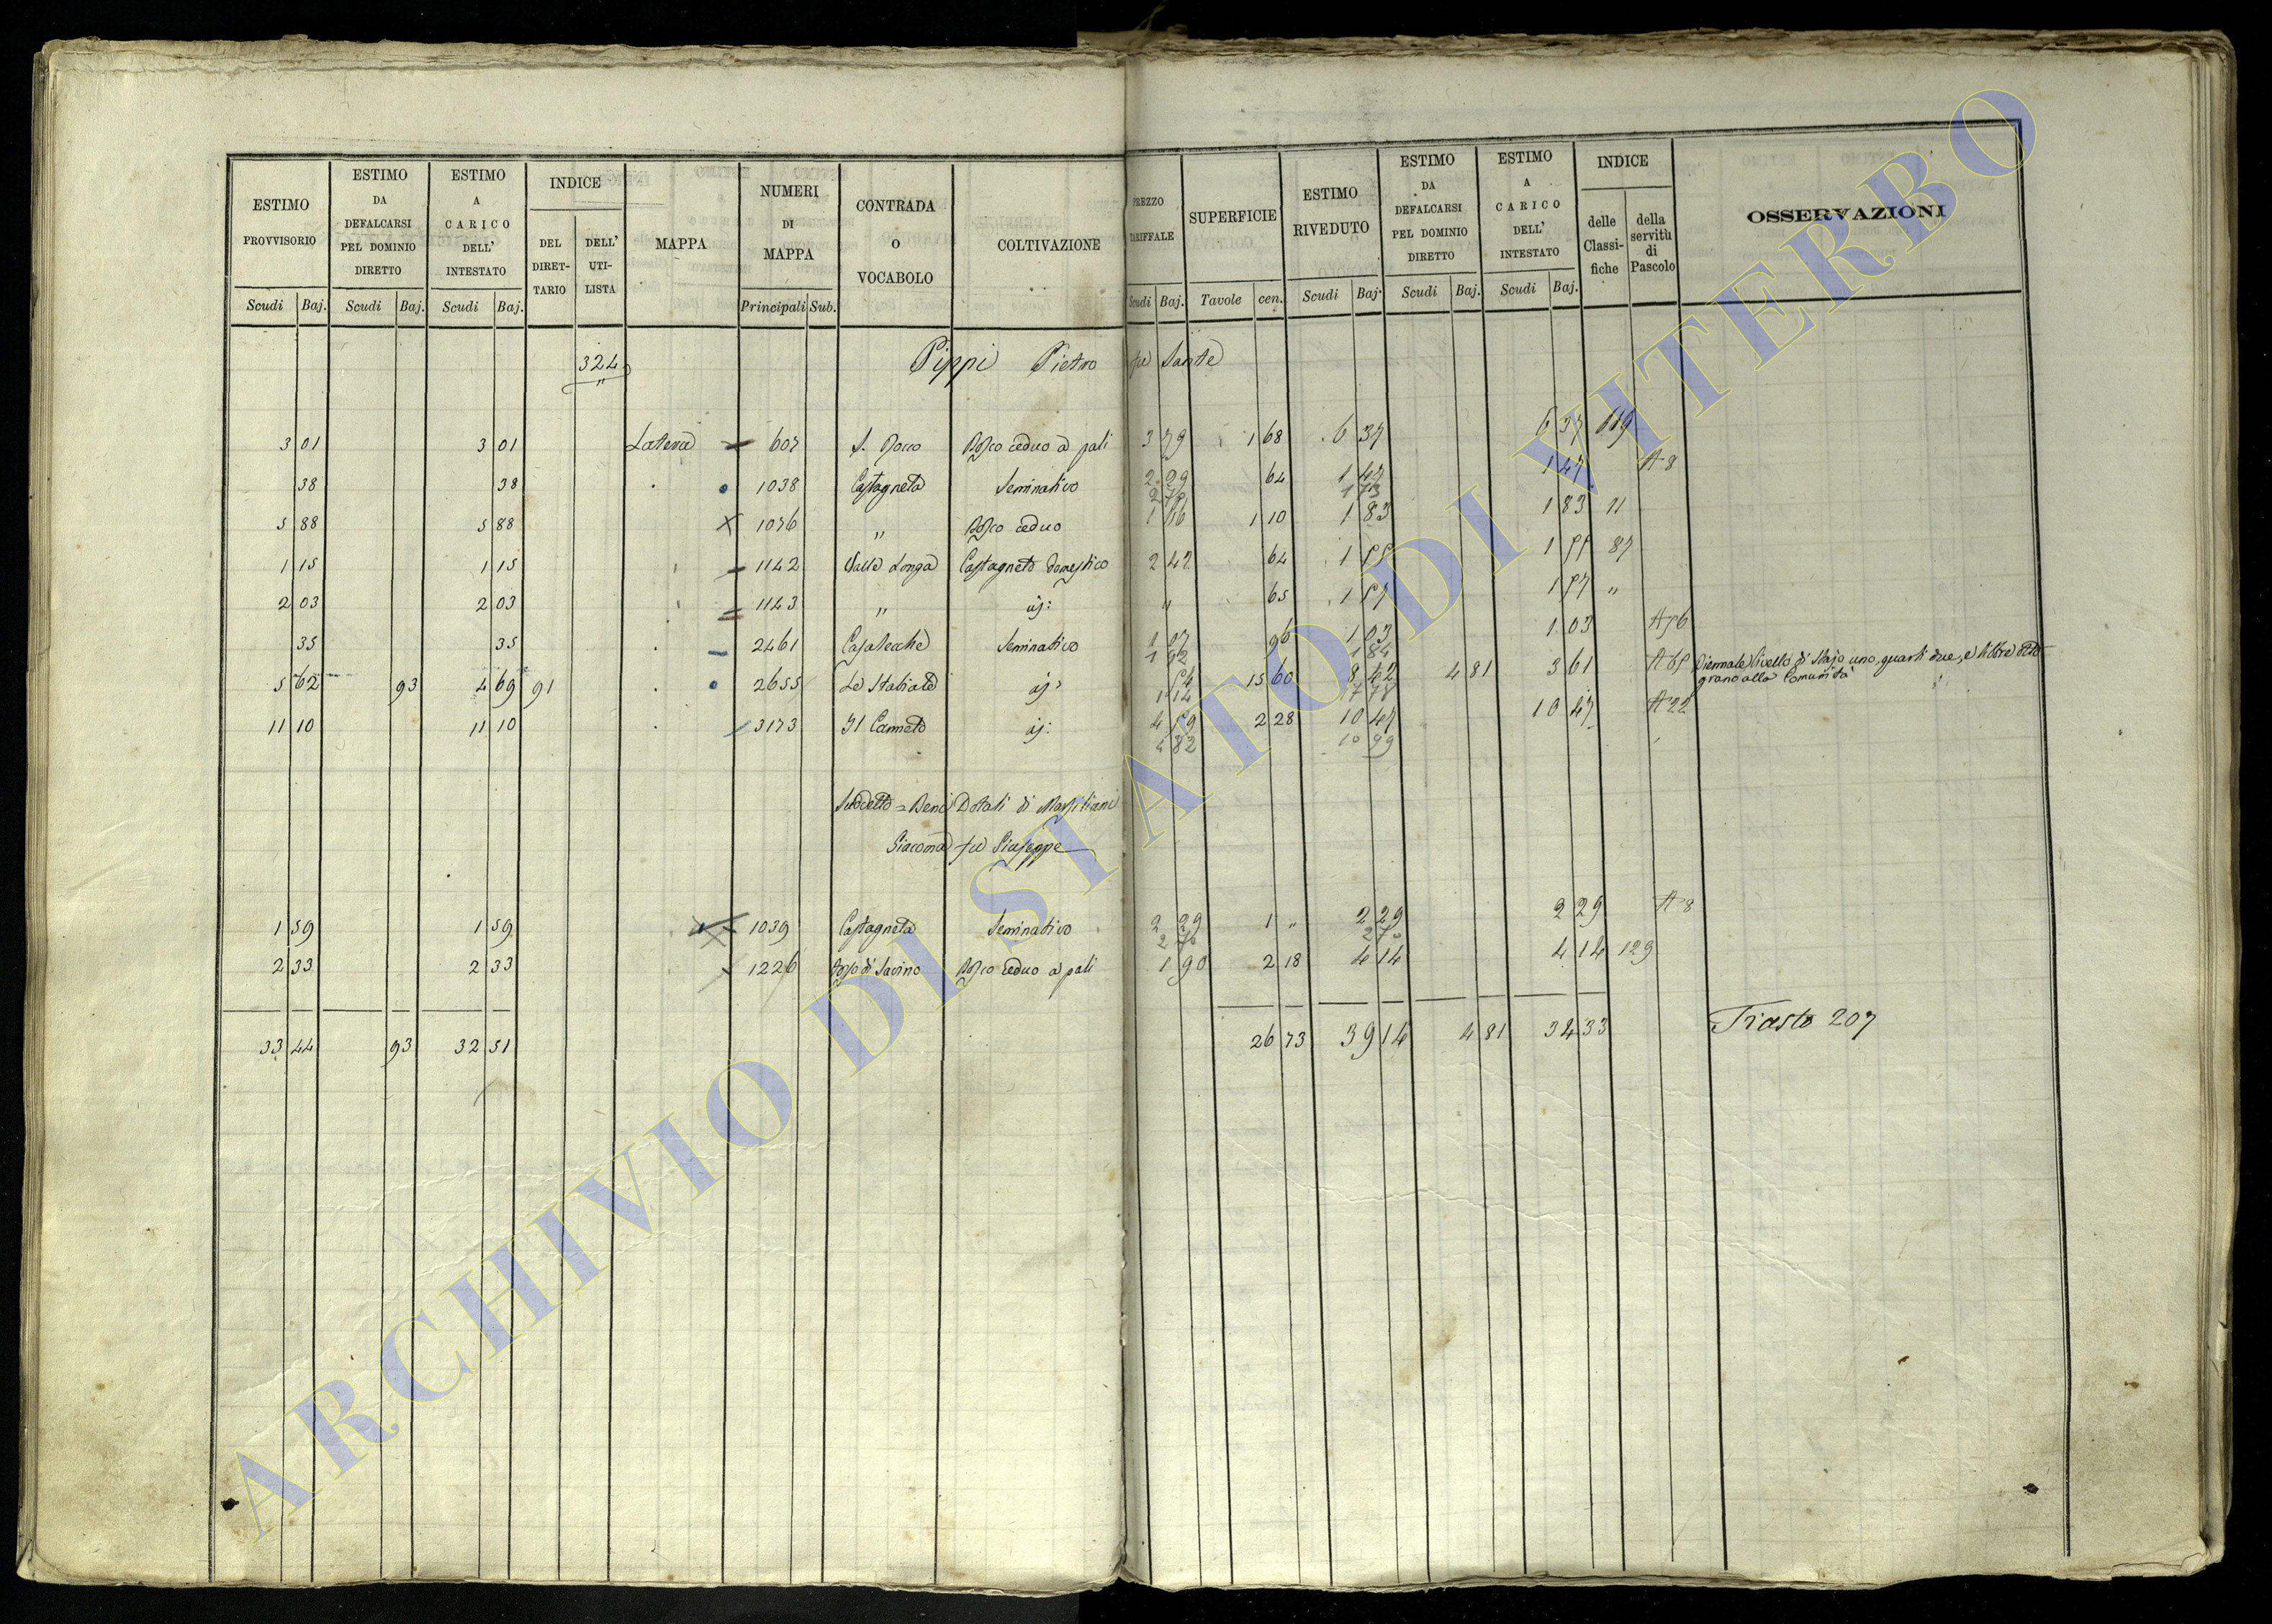 ESTIMO PROVVISORIO Scudi Baj.
ESTIMO DA DEFALCARSI PEL DOMINIO DIRETTO Scudi Baj.
ESTIMO A CARICO DELL' INTESTATO Scudi Baj.
INDICE DEL DIRETTARIO DELL' UTILISTA
MAPPA
NUMERI DI MAPPA Principali Sub.
CONTRADA O VOCABOLO
COLTIVAZIONE
PREZZO TARIFFALE Scudi Baj.
SUPERFICIE Tavole cen.
ESTIMO RIVEDUTO Scudi Baj.
ESTIMO DA DEFALCARSI PEL DOMINIO DIRETTO Scudi Baj.
ESTIMO A CARICO DELL' INTESTATO Scudi Baj.
INDICE delle Classifiche della servitù di Pascolo
OSSERVAZIONI
324 Pippi Pietro fu Sante
3 01 3 01 Latera 607 S. Rocco Bosco ceduo a pali 3 79 1 68 6 37 6 37 119
38 38 1038 Castagneta Seminativo 2 29 64 1 47 1 47 A 8
2 70 1 73
5 88 5 88 1076 " Bosco ceduo 1 66 1 10 1 83 1 83 11
1 15 1 15 1142 Valle Longa Castagneto domestico 2 42 64 1 55 1 55 87
2 03 2 03 1143 " id: " 65 1 57 1 57 "
35 35 2461 Casalecchie Seminativo 1 07 96 1 03 1 03 A 56
1 92 1 84
5 62 93 4 69 91 2655 Le Stabiate id: 54 15 60 8 42 4 81 3 61 A 65 Biennale livello di Stajo uno, quarti due, e libbre otto
grano alla Comunità
1 14 17 78
11 10 11 10 3173 Il Canneto id: 4 59 2 28 10 47 10 47 A 22
4 82 10 99
Suddetto = Beni Dotali di Massiliani
Giacoma fu Giuseppe
1 59 1 59 1039 Castagneta Seminativo 2 29 1 " 2 29 2 29 A 8
2 70 2 70
2 33 2 33 1226 Fosso di Savino Bosco ceduo a pali 1 90 2 18 4 14 4 14 129
33 44 93 32 51 26 73 39 14 4 81 34 33 Tiasto 207
ARCHIVIO DI STATO DI VITERBO